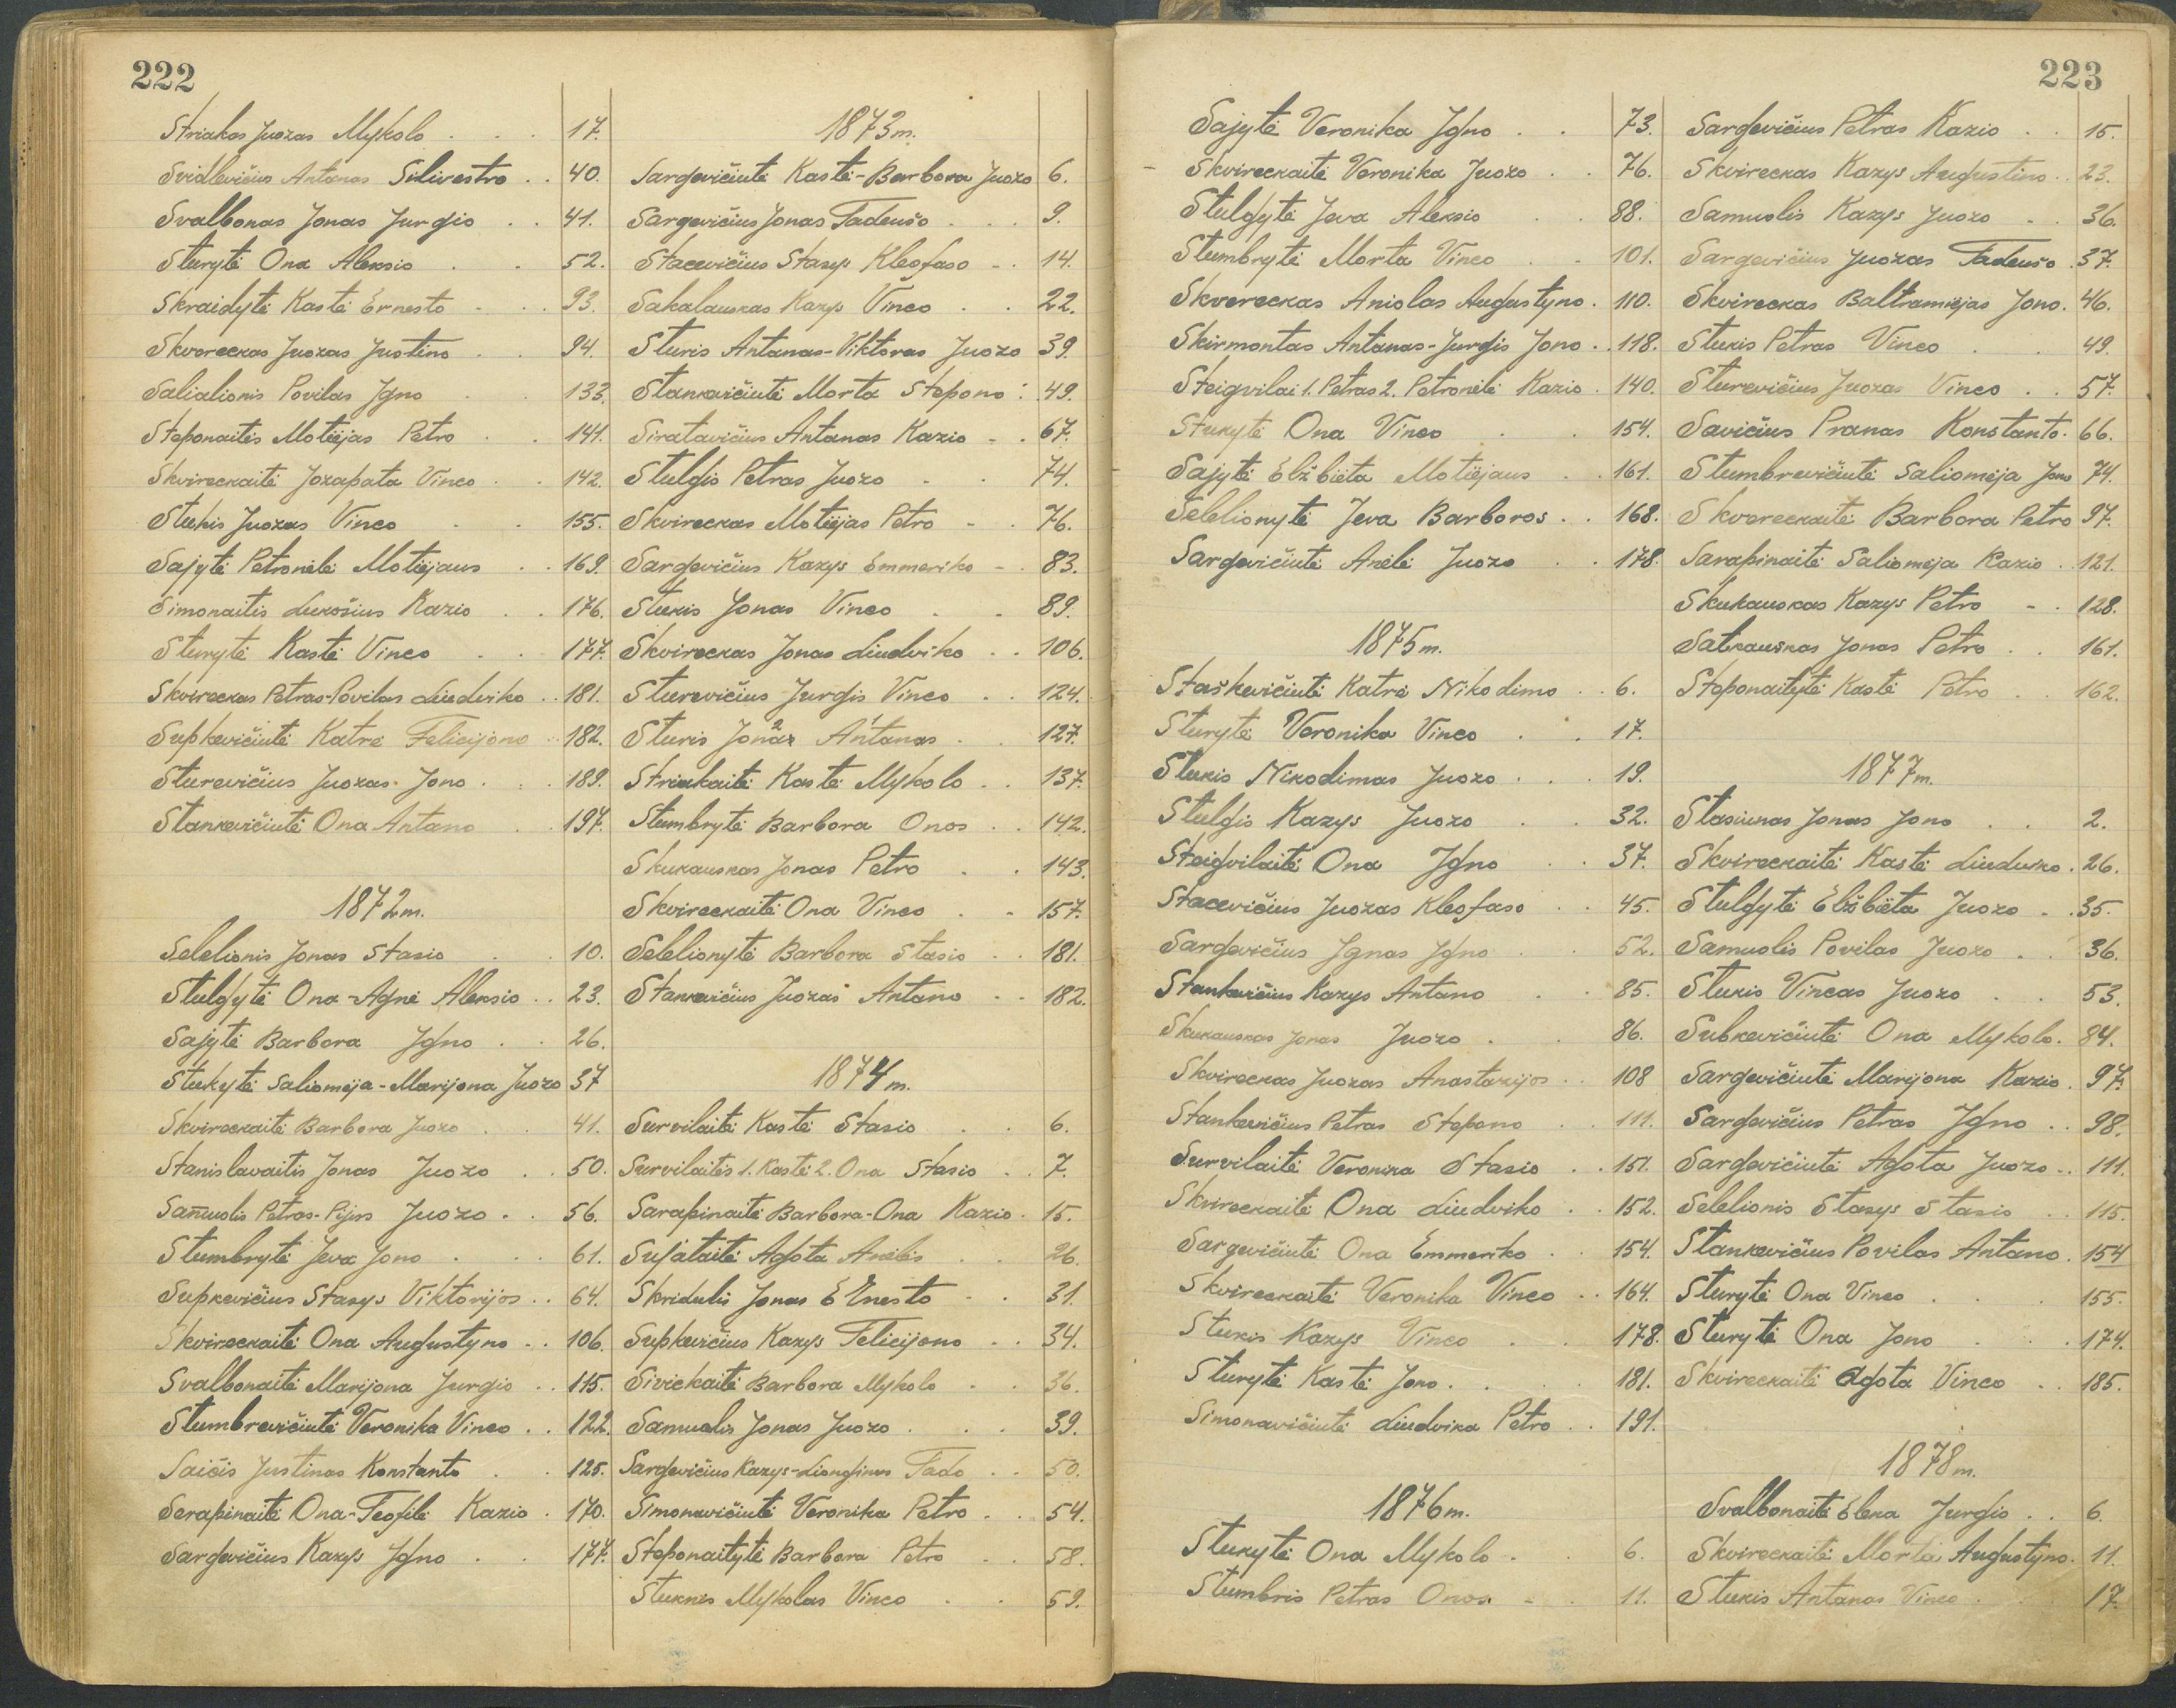 222
Striakas Juozas Mykolo . . . 17.
Svidlevičius Antanas Silivestro . . 40.
Svalbonas Jonas Jurgio . . 41.
Sturytė Ona Aleksio . . 52.
Skraidytė Kastė Ernesto . . . 93.
Skvereckas Juozas Justino . . 94.
Salialionis Povilas Igno . . 133.
Steponaitis Motiejas Petro . . 141.
Skvireckaitė Jozapata Vinco . . 142.
Stukis Juozas Vinco . . 155.
Sajytė Petronėlė Motiejaus . . 169.
Simonaitis Lukošius Kazio . . 176.
Sturytė Kastė Vinco . . 177.
Skvireckas Petras-Povilas Liudviko . . 181.
Supkevičiutė Katrė Felicijono . . 182.
Sturevičius Juozas Jono . . . 189.
Stankevičiutė Ona Antano . . 197.
1872 m.
Selelionis Jonas Stasio . . 10.
Stulgytė Ona-Agnė Aleksio . . 23.
Sajytė Barbora Igno . . 26.
Stukytė Saliomėja-Marijona Juozo 37
Skvireckaitė Barbora Juozo . . 41.
Stanislavaitis Jonas Juozo . . 50.
Samuolis Petras-Pijus Juozo . . 56.
Stumbrytė Jeva Jono . . . 61.
Supkevičius Stasys Viktorijos . . 64.
Skvireckaitė Ona Augustyno . . 106.
Svalbonaitė Marijona Jurgio . . 115.
Stumbrevičiutė Veronika Vinco . . 122.
Saičis Justinas Konstanto . . 125.
Serapinaitė Ona-Teofilė Kazio . 170.
Sargevičius Kazys Igno . . 177.
1873 m.
Sargevičiutė Kastė-Barbora Juozo 6.
Sargevičius Jonas Tadeušo . . . 9.
Stacevičius Stasys Kleofaso . . 14.
Sakalauskas Kazys Vinco . . 22.
Sturis Antanas-Viktoras Juozo 39.
Stankevičiutė Morta Stepono . 49.
Siratavičius Antanas Kazio . . 67.
Stulgis Petras Juozo . . 74.
Skvireckas Motiejas Petro . . 76.
Sargevičius Kazys Emmeriko . . 83.
Stukis Jonas Vinco . . 89.
Skvireckas Jonas Liudviko . . 106.
Sturevičius Jurgis Vinco . . 124.
Sturis Jonas 2 Antanas 1 . . 127.
Striakaitė Kastė Mykolo . . 137.
Stumbrytė Barbora Onos . . 142.
Skukauskas Jonas Petro . . 143.
Skvireckaitė Ona Vinco . . 157.
Selelionytė Barbora Stasio . . 181.
Stankevičius Juozas Antano . . 182.
1874 m.
Survilaitė Kastė Stasio . . 6.
Survilaitės 1. Kastė 2. Ona Stasio . . 7.
Sarapinaitė Barbora-Ona Kazio . 15.
Sujataitė Agota Anelės . . 26.
Skridulis Jonas Ernesto . . 31.
Supkevičius Kazys Felicijono . . 34.
Sivickaitė Barbora Mykolo . . 36.
Samuolis Jonas Juozo . . . 39.
Sargevičius Kazys-Liongines Tado . . 50.
Simonavičiutė Veronika Petro . . 54.
Steponaitytė Barbora Petro . . 58.
Stuknis Mykolas Vinco . . 59.
223
Sajytė Veronika Igno . . 73.
Skvireckaitė Veronika Juozo . . 76.
Stulgytė Jeva Aleksio . . 88.
Stumbrytė Morta Vinco . . 101.
Skvereckas Aniolas Augustyno . 110.
Skirmontas Antanas-Jurgis Jono . . 118.
Steigvilai 1. Petras 2. Petronėlė Kazio . 140.
Stukytė Ona Vinco . . 154.
Sajytė Elžbieta Motiejaus . . 161.
Selelionytė Jeva Barboros . . 168.
Sargevičiutė Anelė Juozo . . 178.
1875 m.
Staškevičiutė Katrė Nikodimo . . 6.
Sturytė Veronika Vinco . . 17.
Stukis Nikodimas Juozo . . . 19.
Stulgis Kazys Juozo . . 32.
Steigvilaitė Ona Igno . . 37.
Stacevičius Juozas Kleofaso . . 45.
Sargevičius Ignas Igno . . 52.
Stankevičius Kazys Antano . . 85.
Skukauskas Jonas Juozo . . 86.
Skvireckas Juozas Anastazijos . . 108
Stankevičius Petras Stepono . . 111.
Survilaitė Veronika Stasio . . 151.
Skvireckaitė Ona Liudviko . . 152.
Sargevičiutė Ona Emmeriko . . 154.
Skvireckaitė Veronika Vinco . . 164.
Stukis Kazys Vinco . . 178.
Sturytė Kastė Jono . . . 181.
Simonavičiutė Liudvika Petro . . 191.
1876 m.
Stukytė Ona Mykolo . . 6.
Stumbris Petras Onos . . 11.
Sargevičius Petras Kazio . . 15.
Skvireckas Kazys Augustino . . 23.
Samuolis Kazys Juozo . . 36.
Sargevičius Juozas Tadeušo . 37.
Skvireckas Baltramiejas Jono . 46.
Stukis Petras Vinco . . 49.
Sturevičius Juozas Vinco . . 57.
Savičius Pranas Konstanto . 66.
Stumbrevičiutė Saliomėja Jono 74.
Skvereckaitė Barbora Petro 97.
Sarapinaitė Saliomėja Kazio . 121.
Skukauskas Kazys Petro . . 128.
Satkauskas Jonas Petro . . 161.
Steponaitytė Kastė Petro . . 162.
1877 m.
Stasiunas Jonas Jono . . 2.
Skvireckaitė Kastė Liudviko . 26.
Stulgytė Elžbieta Juozo . . 35.
Samuolis Povilas Juozo . . 36.
Stukis Vincas Juozo . . 53.
Subkevičiutė Ona Mykolo . 84.
Sargevičiutė Marijona Kazio . 97.
Sargevičius Petras Igno . . 98.
Sargevičiutė Agota Juozo . . 111.
Selelionis Stasys Stasio . . 115.
Stankevičius Povilas Antano . 154
Sturytė Ona Vinco . . . 155.
Sturytė Ona Jono . . . 174.
Skvireckaitė Agota Vinco . . 185.
1878 m.
Svalbonaitė Elena Jurgio . . 6.
Skvireckaitė Morta Augustyno . 11.
Stukis Antanas Vinco . . 17.